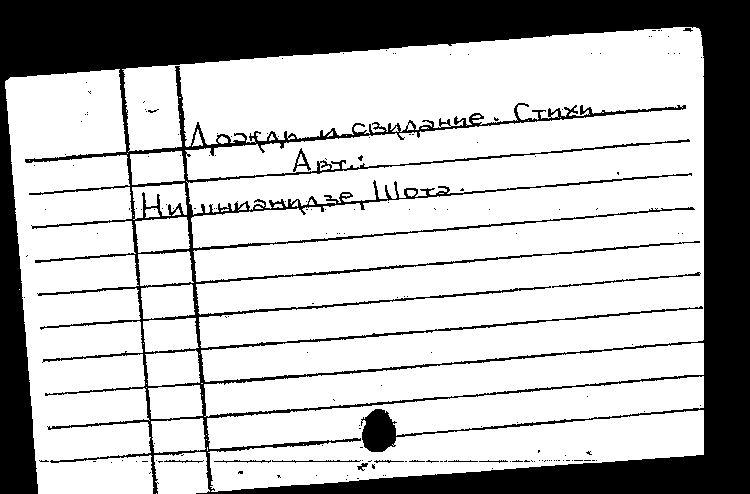 Дожди и свидание. Стихи.
Авт.:
Нишнианидзе, Шота.